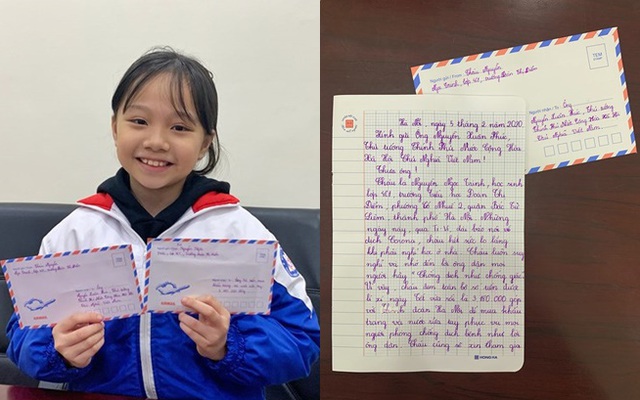 Hà Nội, ngày 5 tháng 2 năm 2020.
Kính gửi Ông Nguyễn Xuân Phúc,
Thủ tướng Chính Phủ Nước Cộng Hòa
Xã Hội Chủ Nghĩa Việt Nam!
Thưa ông!
Cháu là Nguyễn Ngọc Trinh, học sinh
lớp 4I1, trường Tiểu học Đoàn Thị
Điểm, phường Cổ Nhuế 2, quận Bắc Từ
Liêm, thành phố Hà Nội. Những
ngày này, qua Ti vi, đài báo nói về
dịch Corona, cháu hết sức lo lắng
khi phải nghỉ học ở nhà. Cháu luôn suy
nghĩ và nhớ đến lời ông dặn mọi
người hãy "Chống dịch như chống giặc".
Vì vậy, cháu đem toàn bộ số tiền được
lì xì ngày Tết vừa rồi là 3.670.000 góp
với Thành đoàn Hà Nội để mua khẩu
trang và nước rửa tay phục vụ mọi
người phòng chống dịch bệnh như lời
ông dặn. Cháu cũng sẽ xin tham gia
HONG HA
Người gửi / From: Cháu Nguyễn
Ngọc Trinh, lớp 4I1, trường Đoàn Thị Điểm
TEM
Người nhận / To: Ông
Nguyễn Xuân Phúc, Thủ tướng
Chính Phủ Nước Cộng Hòa Xã Hội
Chủ Nghĩa Việt Nam.